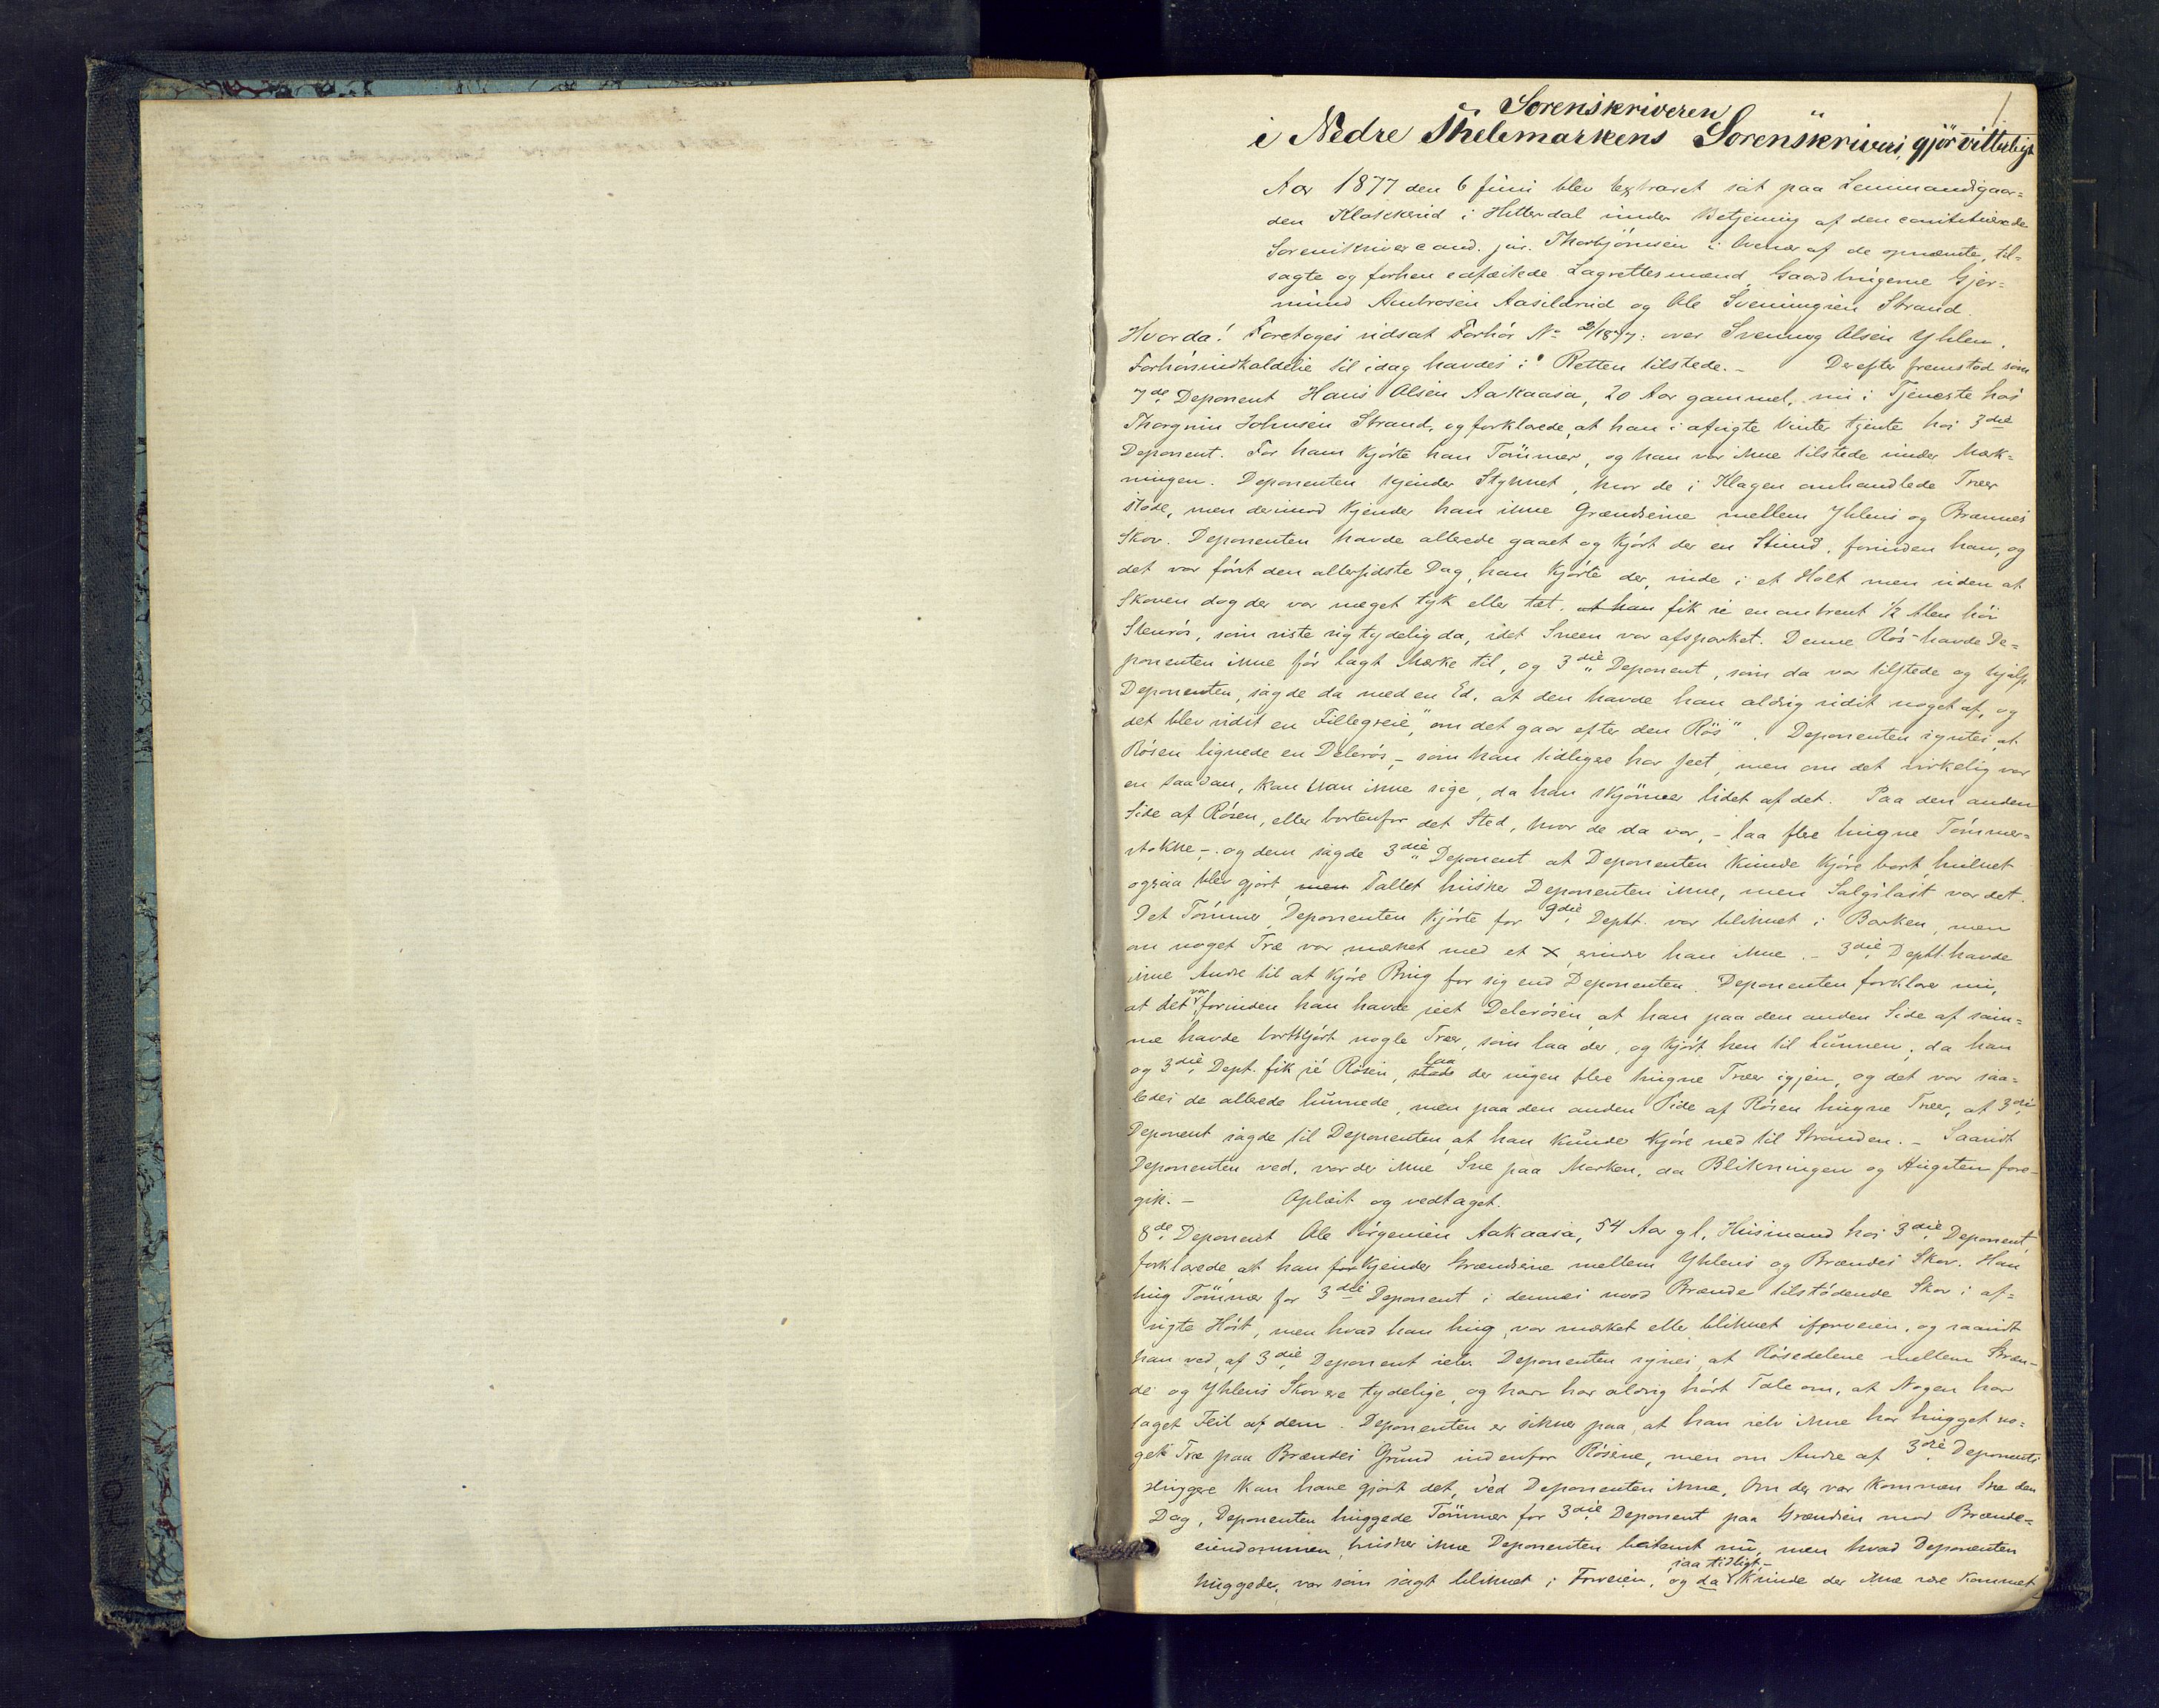 1
Sorenskriveren
i Nedre Thelemarkens Sorenskriveri, gjör vitterligt
Aar 1877 den 6 Juni blev Extraret sat paa Lensmandsgaar=
den Klokkerud i Hitterdal under Betjening af den constituerede
Sorenskriver cand. jur. Thorbjörnsen i Overvær af de opnævnte, til=
sagte og forhen edfæstede Lagrettesmænd Gaardbrugerne Gjer=
mund Ambrosen Aasildrud og Ole Sveinungsen Strand.
Hvorda! Foretoges udsat Forhör No 2/1877: over Svenung Olsen Yhlen.
Forhörsindkaldelse til idag havdes i Retten tilstede. – Derefter fremstod som
7de Deponent Hans Olsen Aakaasa, 20 Aar gammel, nu i Tjeneste hos
Thorgrim Johnsen Strand, og forklarede, at han i afvigte Vinter tjente hos 3die
Deponent. For ham kjörte han Tömmer, og han var ikke tilstede under Mærk=
ningen. Deponenten kjender Stykket, hvor de i Klagen omhandlede Træer
stode, men derimod kjender han ikke Grændserne mellem Yhlens og Brænnes
Skov. Deponenten havde allerede gaaet og kjört der en Stund, forinden han, og
det var först den allersidste Dag, han kjörte der, inde i et Holt men uden at
Skoven dog der var meget tyk eller tæt. at han fik se en omtrent 1/2 Alen höi
Stenrös, som viste sig tydelig da, idet Sneen var afsparket. Denne Rös havde De=
ponenten ikke för lagt Mærke til, og 3die Deponent, som da var tilstede og hjalp
Deponenten, sagde da med en Ed, at den havde han aldrig vidst noget af, og
det blev vidst en Fillegreie, "om det gaar efter den Rös". Deponenten syntes, at
Rösen lignede en Delerös, – som han tidligere har seet, men om det virkelig var
en saadan, kan han ikke sige, da han skjönner lidet af det. Paa den anden
Side af Rösen, eller bortenfor det Sted, hvor de da var, – laa flere hugne Tömmer=
stokke –. og dem sagde 3die Deponent at Deponenten kunde kjöre bort, hvilket
ogsaa blev gjort men Tallet husker Deponenten ikke, men Salgslast var det.
Det Tömmer, Deponenten kjörte for 3die Deptt. var blinket i Barken, men
om noget Træ var mærket med et x, erindrer han ikke. – 3die Deptt. havde
ikke Andre til at kjöre Brug for sig end Deponenten. Deponenten forklarer nu,
at det var forinden han havde seet Delerösen, at han paa den anden Side af sam=
me havde bortkjört nogle Træer, som laa der, og kjört hen til Lunnen; da han
og 3die Dept. fik se Rösen, stode laa der ingen flere hugne Træer igjen, og det var saa=
ledes de allerede lunnede, men paa den anden Side af Rösen hugne Træer, at 3die
Deponent sagde til Deponenten, at han kunde kjöre ned til Stranden. – Saavidt
Deponenten ved, var der ikke Sne paa Marken, da Blinkningen og Hugsten fore=
gik. – Oplæst og vedtaget.
8de Deponent Ole Jörgensen Aakaasa, 54 Aar gl, Husmand hos 3die Deponent,
forklarede, at han for kjender Grændserne mellem Yhlens og Brændes Skov. Han
hug Tömmer for 3die Deponent i dennes mod Brænde tilstödende Skov i af=
vigte Höst, men hvad han hug, var mærket eller blinket iforveien, og saavidt
han ved, af 3die Deponent selv. Deponenten synes, at Rösedelene mellem Bræn=
de og Yhlens Skov ere tydelige, og han har aldrig hört Tale om, at Nogen har
taget Feil af dem. Deponenten er sikker paa, at han selv ikke har hugget no=
get Træ paa Brændes Grund indenfor Rösene, men om Andre af 3die Deponents
Huggere kan have gjort det, ved Deponenten ikke. Om der var kommen Sne den
Dag, Deponenten huggede Tömmer for 3die Deponent paa Grændsen mod Brænde=
eiendommen, husker ikke Deponenten bestemt nu, men hvad Deponenten
saa tidligt –
huggede, var som sagt blinket i Forveien, og da kunde der ikke være kommet